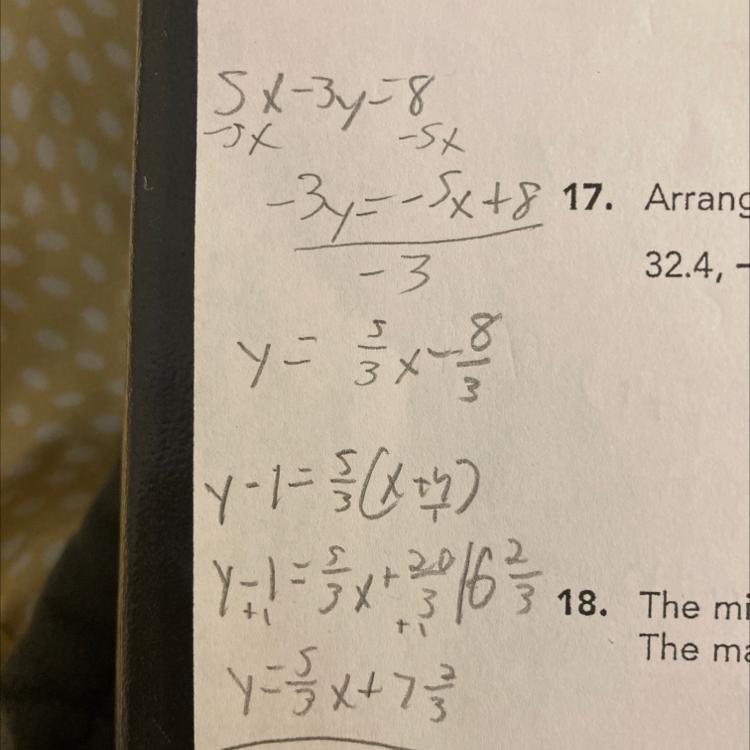 5x-3y=8
-5x -5x
-3y=-5x+8
-3
17. Arrang
32.4, -
y= 5/3 x - 8/3
y-1= 5/3 (x+4/1)
y-1= 5/3 x+ 20/3 | 6 2/3
+1 +1
18. The mi
The ma
y= 5/3 x+7 2/3